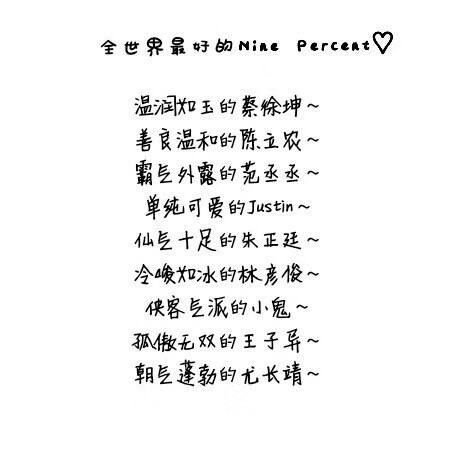 全世界最好的Nine Percent♡
温润如玉的蔡徐坤~
善良温和的陈立农~
霸气外露的范丞丞~
单纯可爱的Justin~
仙气十足的朱正廷~
冷峻如冰的林彦俊~
侠客气派的小鬼~
孤傲无双的王子异~
朝气蓬勃的尤长靖~